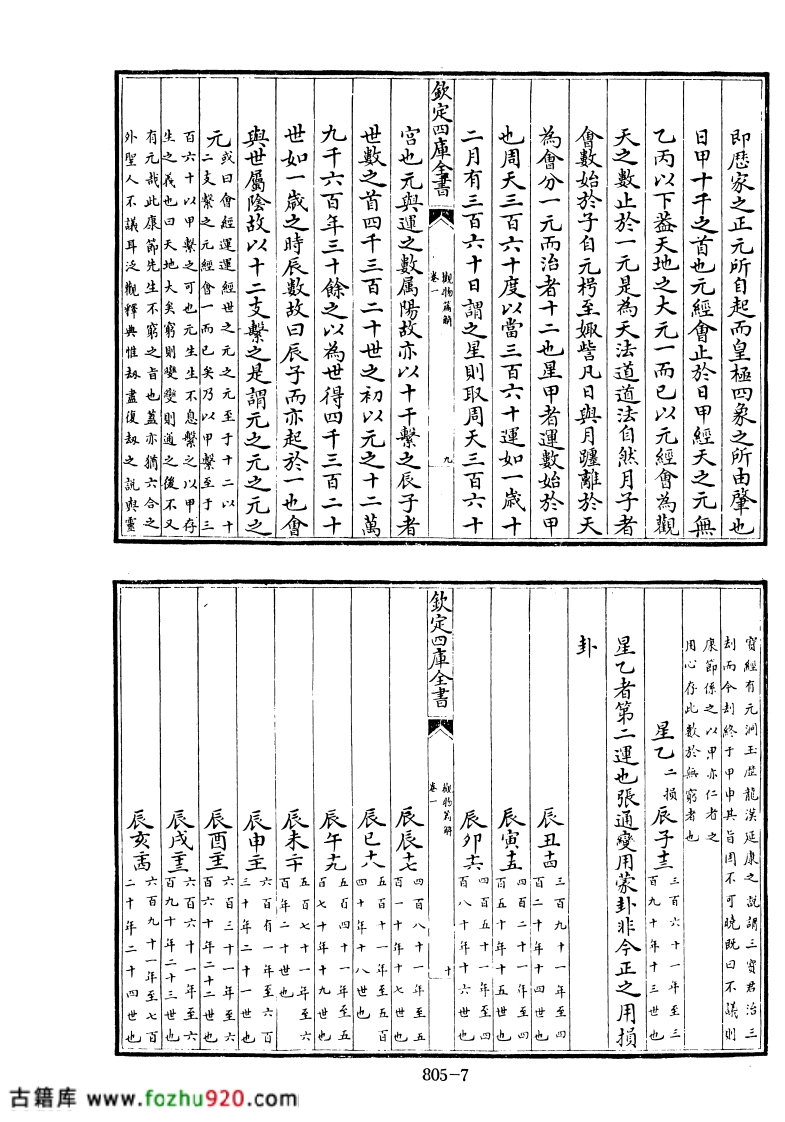 即歴家之正元所自起而皇極四象之所由肇也
日甲十干之首也元經會止於日甲經天之元無
乙丙以下葢天地之大元一而已以元經會為觀
天之數止於一元是為天法道道法自然月子者
會數始於子自元枵至娵訾凡日與月躔離於天
為會分一元而治者十二也星甲者運數始於甲
也周天三百六十度以當三百六十運如一歳十
二月有三百六十日謂之星則取周天三百六十
欽定四庫全書
觀物篇解
卷一
九
宮也元與運之數属陽故亦以十干繫之辰子者
世數之首四千三百二十世之初以元之十二萬
九千六百年三十餘之以為世得四千三百二十
世如一歳之時辰數故曰辰子而亦起於一也會
與世屬陰故以十二支繫之是謂元之元之元之
元
或曰會經運運經世之元之元至于十二以十
二支繫之元經會一而已矣乃以甲繫至于三
百六十以甲繫之可也元生生不息繫之以甲存
生之義也曰天地大矣窮則變變則通之復不又
有元哉此康節先生不窮之旨也蓋亦猶六合之
外聖人不議耳泛觀釋典惟劫盡復劫之説與靈
寳經有元洞玉歴龍漢延康之説謂三寳君治三
刦而今刦終于甲申其旨固不可曉既曰不議則
康節係之以甲亦仁者之
用心存此數於無窮者也
星乙
二損
辰子十三
三百六十一年至三
百九十年十三世也
星乙者第二運也張通變用蒙卦非今正之用損
卦
辰丑十四
三百九十一年至四
百二十年十四世也
辰寅十五
四百二十一年至四
百五十年十五世也
辰卯十六
四百五十一年至四
百八十年十六世也
欽定四庫全書
觀物篇解
卷一
十
辰辰十七
四百八十一年至五
百一十年十七世也
辰巳十八
五百十一年至五百
四十年十八世也
辰午十九
五百四十一年至五
百七十年十九世也
辰未二十
五百七十一年至六
百年二十世也
辰申二十一
六百有一年至六百
三十年二十一世也
辰酉二十二
六百三十一年至六
百六十年二十二世也
辰戌二十三
六百六十一年至六
百九十年二十三世也
辰亥二十四
六百九十一年至七百
二十年二十四世也
805-7
古籍库 www.fozhu920.com